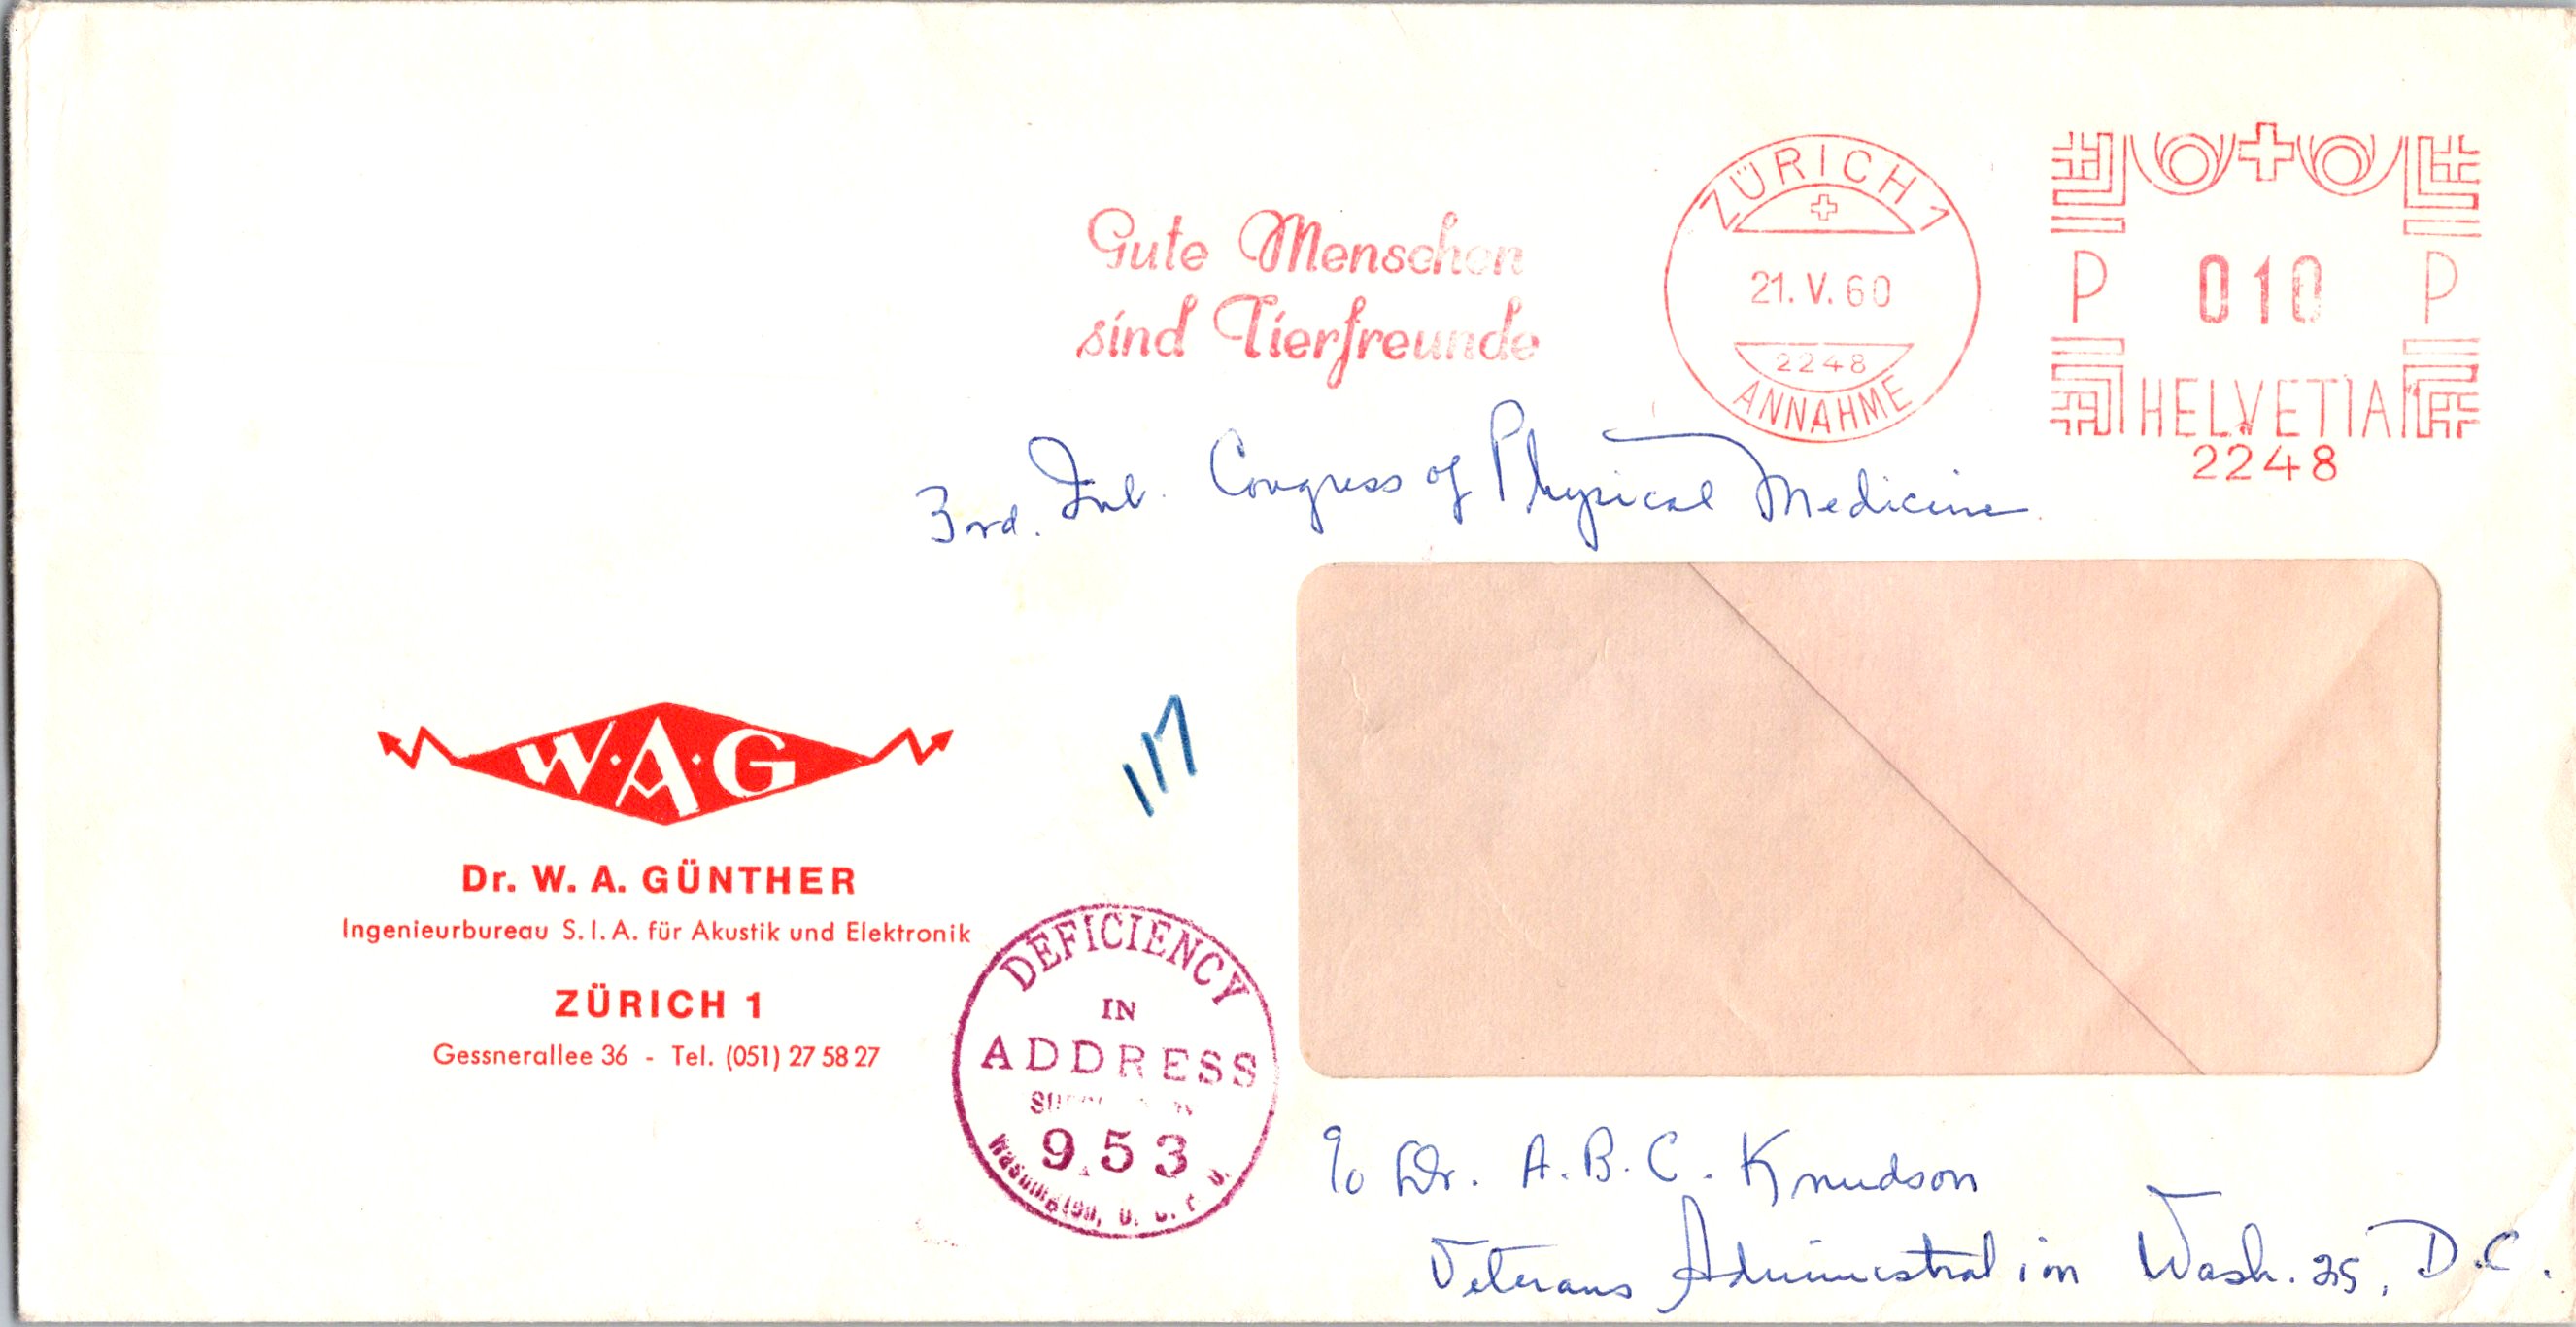 Gute Menschen
sind Tierfreunde
ZÜRICH 1
21. V. 60
2248
ANNAHME
P 010 P
HELVETIA
2248
3rd. Int. Congress of Physical Medicine
W·A·G
117
Dr. W. A. GÜNTHER
Ingenieurbureau S.I.A. für Akustik und Elektronik
ZÜRICH 1
Gessnerallee 36 - Tel. (051) 27 58 27
DEFICIENCY
IN
ADDRESS
953
Washington, D.
c/o Dr. A. B. C. Knudson
Veterans Administration Wash. 25, D.C.